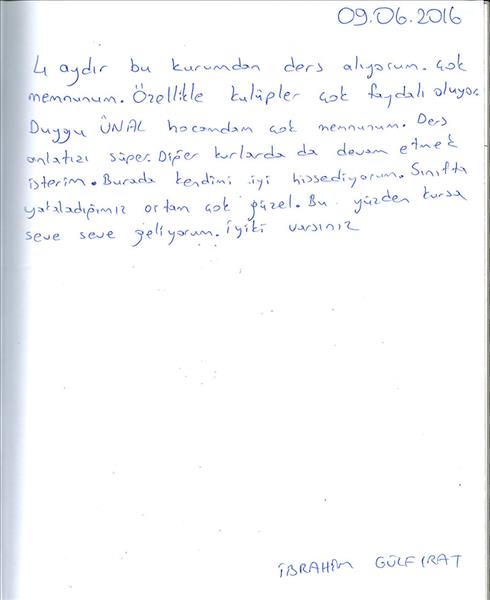 09.06.2016
4 aydır bu kurumdan ders alıyorum. çok
memnunum. Özellikle kulüpler çok faydalı oluyor.
Duygu ÜNAL hocamdam çok memnunum. Ders
anlatızı süper. Diğer kurlarda da devam etmek
isterim. Burada kendimi iyi hissediyorum. Sınıfta
yakaladığımız ortam çok güzel. Bu yüzden kursa
seve seve geliyorum. iyiki varsınız
İBRAHİM GÜLFIRAT